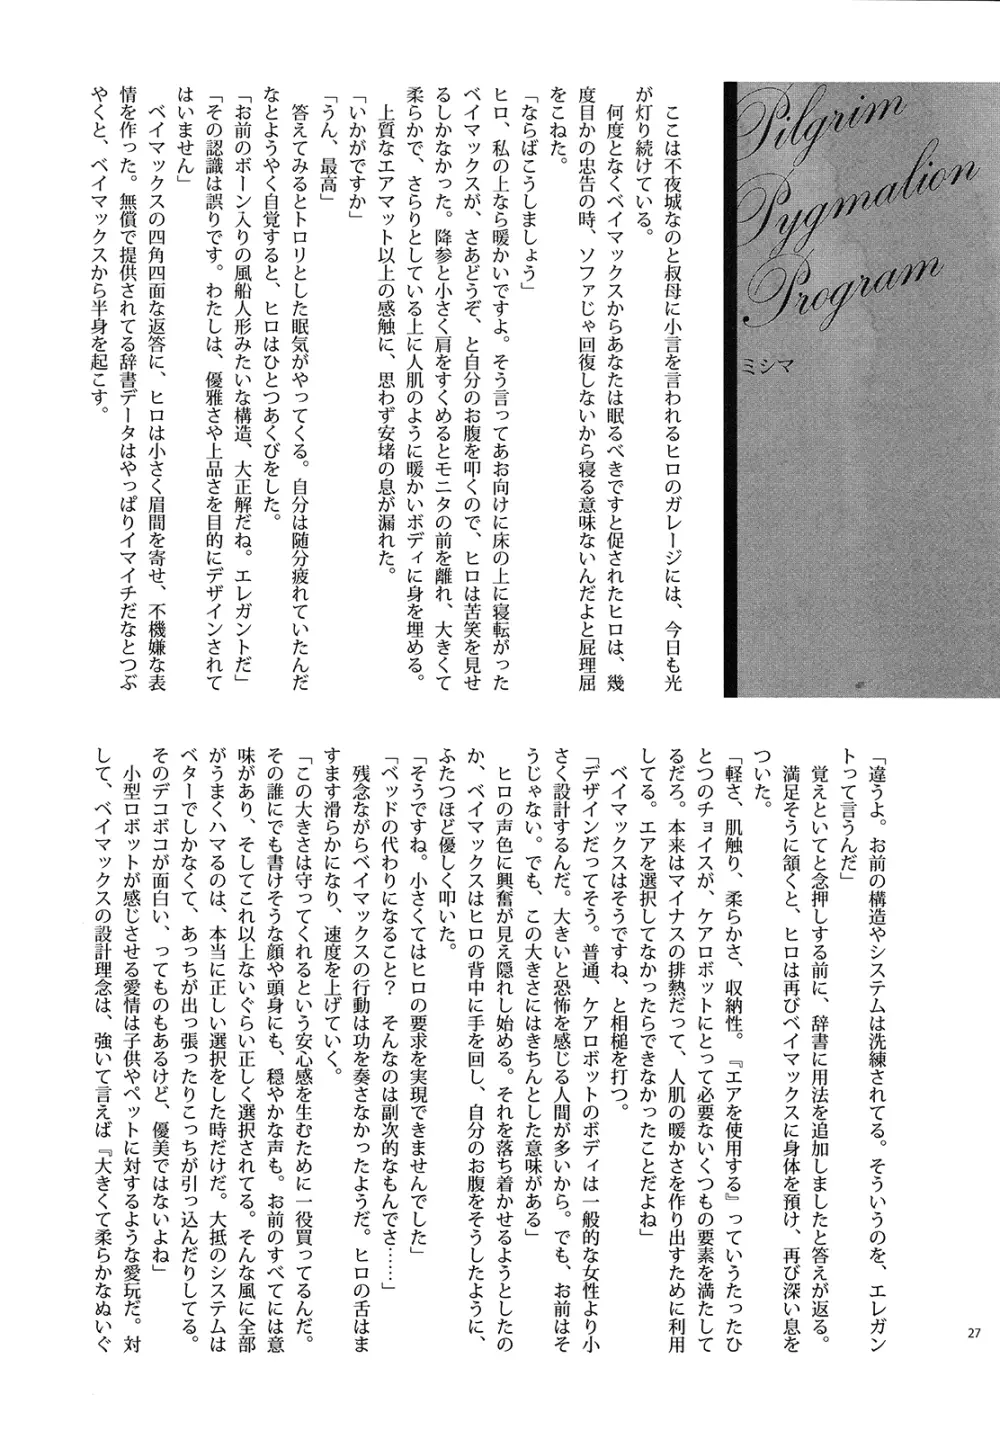 Pilgrim
Pygmalion
Program
ミシマ
　ここは不夜城なのと叔母に小言を言われるヒロのガレージには、今日も光
が灯り続けている。
　何度となくベイマックスからあなたは眠るべきですと促されたヒロは、幾
度目かの忠告の時、ソファじゃ回復しないから寝る意味ないんだよと屁理屈
をこねた。
「ならばこうしましょう」
ヒロ、私の上なら暖かいですよ。そう言ってあお向けに床の上に寝転がった
ベイマックスが、さあどうぞ、と自分のお腹を叩くので、ヒロは苦笑を見せ
るしかなかった。降参と小さく肩をすくめるとモニタの前を離れ、大きくて
柔らかで、さらりとしている上に人肌のように暖かいボディに身を埋める。
　上質なエアマット以上の感触に、思わず安堵の息が漏れた。
「いかがですか」
「うん、最高」
　答えてみるとトロリとした眠気がやってくる。自分は随分疲れていたんだ
なとようやく自覚すると、ヒロはひとつあくびをした。
「お前のボーン入りの風船人形みたいな構造、大正解だね。エレガントだ」
「その認識は誤りです。わたしは、優雅さや上品さを目的にデザインされて
はいません」
　ベイマックスの四角四面な返答に、ヒロは小さく眉間を寄せ、不機嫌な表
情を作った。無償で提供されてる辞書データはやっぱりイマイチだなとつぶ
やくと、ベイマックスから半身を起こす。
「違うよ。お前の構造やシステムは洗練されてる。そういうのを、エレガン
トって言うんだ」
　覚えといてと念押しする前に、辞書に用法を追加しましたと答えが返る。
　満足そうに頷くと、ヒロは再びベイマックスに身体を預け、再び深い息を
ついた。
「軽さ、肌触り、柔らかさ、収納性。『エアを使用する』っていうたったひ
とつのチョイスが、ケアロボットにとって必要ないくつもの要素を満たして
るだろ。本来はマイナスの排熱だって、人肌の暖かさを作り出すために利用
してる。エアを選択してなかったらできなかったことだよね」
　ベイマックスはそうですね、と相槌を打つ。
「デザインだってそう。普通、ケアロボットのボディは一般的な女性より小
さく設計するんだ。大きいと恐怖を感じる人間が多いから。でも、お前はそ
うじゃない。でも、この大きさにはきちんとした意味がある」
　ヒロの声色に興奮が見え隠れし始める。それを落ち着かせるようとしたの
か、ベイマックスはヒロの背中に手を回し、自分のお腹をそうしたように、
ふたつほど優しく叩いた。
「そうですね。小さくてはヒロの要求を実現できませんでした」
「ベッドの代わりになること？　そんなのは副次的なもんでさ……」
　残念ながらベイマックスの行動は功を奏さなかったようだ。ヒロの舌はま
すます滑らかになり、速度を上げていく。
「この大きさは守ってくれるという安心感を生むために一役買ってるんだ。
その誰にでも書けそうな顔や頭身にも、穏やかな声も。お前のすべてには意
味があり、そしてこれ以上ないぐらい正しく選択されてる。そんな風に全部
がうまくハマるのは、本当に正しい選択をした時だけだ。大抵のシステムは
ベターでしかなくて、あっちが出っ張ったりこっちが引っ込んだりしてる。
そのデコボコが面白い、ってものもあるけど、優美ではないよね」
　小型ロボットが感じさせる愛情は子供やペットに対するような愛玩だ。対
して、ベイマックスの設計理念は、強いて言えば『大きくて柔らかなぬいぐ
27